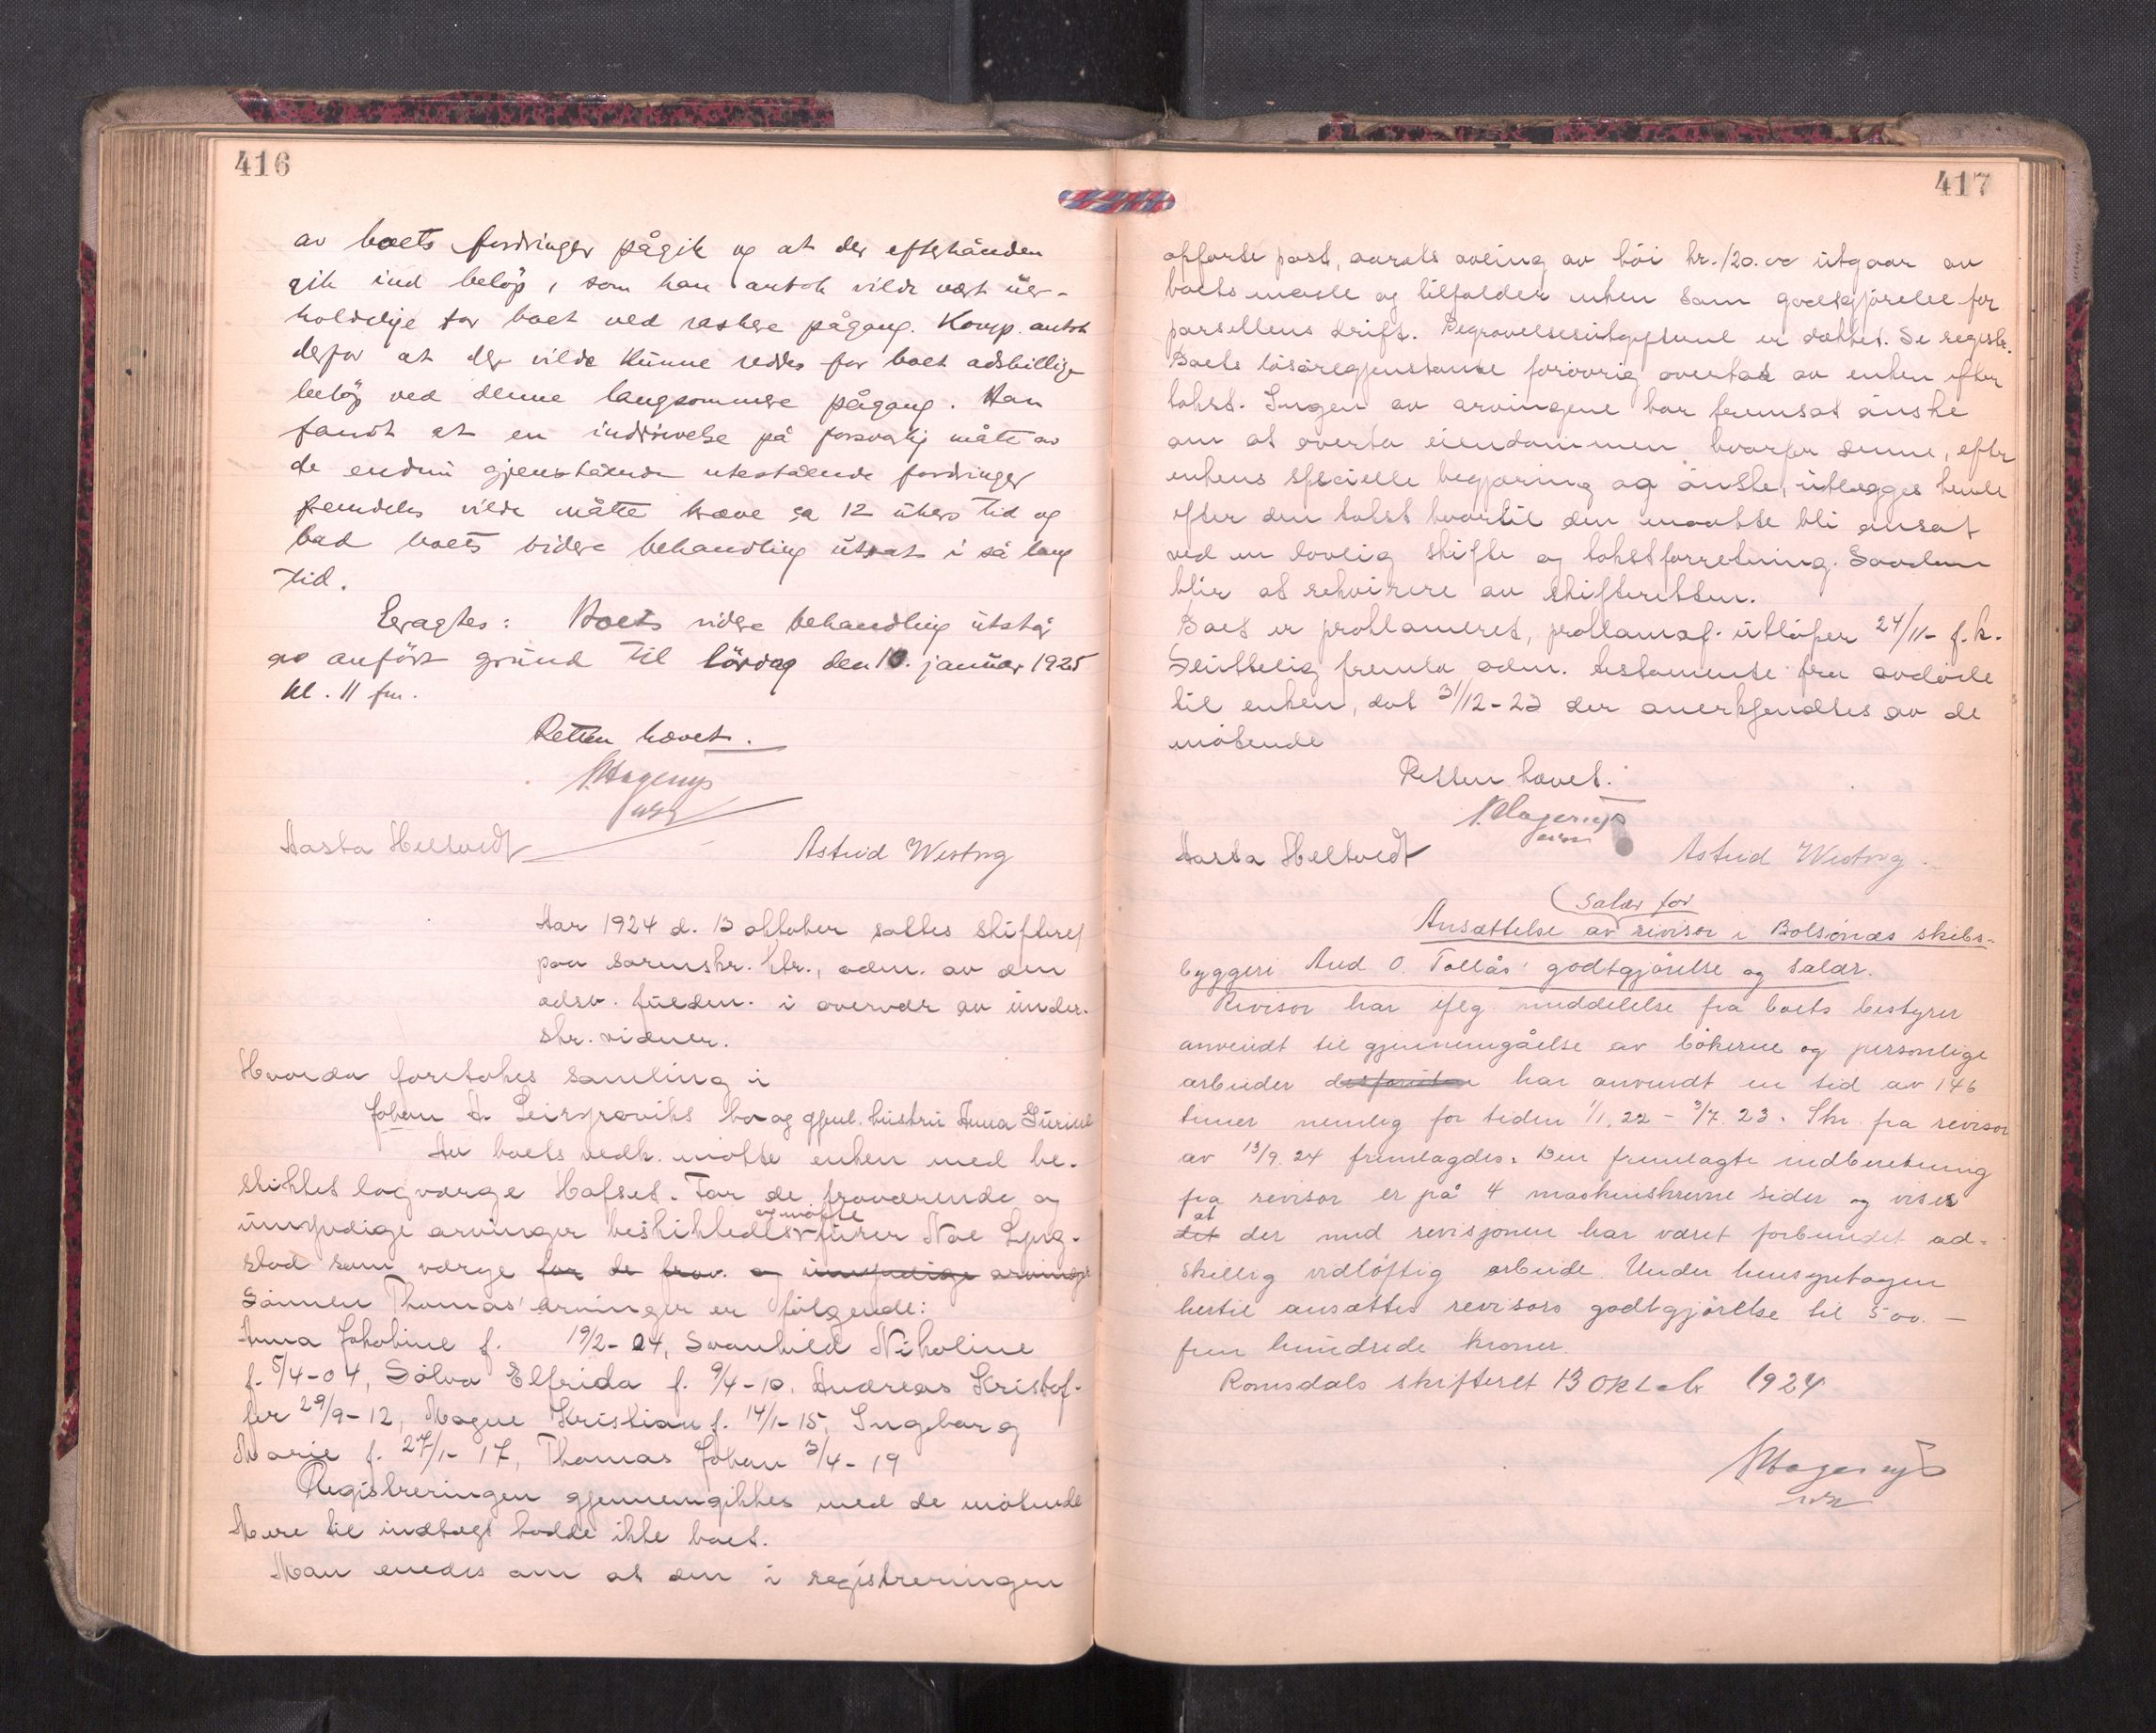 416
av boets fordringer pågik og at der efterhånden
gik ind beløp, som han antok vilde vært uer-
holdelige for boet ved raskere pågang. Komp. antok
derfor at der vilde kunne reddes for boet adskillige
beløp ved denne langsommere pågang. Han
fandt at en inddrivelse på forsvarlig måte av
de endnu gjenstående utestående fordringer
fremdeles vilde måtte kræve ca 12 ukers tid og
bad boets videre behandling utsat i så lang
tid.
Eragtes: Boets videre behandling utstår
av anført grund til lørdag den 10. januar 1925
kl. 11 fm.
Retten hævet.
Hagerup
Aasta Heltvedt Astrid Westvig
Aar 1924 d. 13 oktober sattes skifteret
paa sorenskr. ktr., adm. av den
edsv. fuldm. i overvær av under-
skr. vidner.
Hvorda foretokes samling i
Johan A. Leirgroviks bo og gjenl. hustru Anna Gurine
Au boets vedk. møtte enken med be-
skikket lagværge Hafset. For de fraværende og
og møtte
umyndige arvinger beskikkedes furer Noe Lyng-
stad som værge for de frav. og umyndige arvinger
Sønnen Thomas' arvinger er følgende:
Anna Jakobine f. 19/2-04, Svanhild Nikoline
f. 5/4-04, Solva Elfrida f. 9/4-10, Andreas Kristof-
fer 29/9-12, Magne Kristian f. 14/1-15, Ingeborg
Marie f. 27/1-17, Thomas Johan 3/4-19
Registreringen gjennemgikkes med de møtende
Mere til indtægt hadde ikke boet.
Man enedes om at den i registreringen
417
opførte post, aarets avling av høi kr. 120.00 utgaar av
boets masse og tilfalder enken som godtgjørelse for
parsellens drift. Begravelsesutgiftene er dækket. Se registr.
Boets løsøregjenstande forøvrig overtas av enken efter
takst. Ingen av arvingene har fremsat ønske
om at overta eiendommen hvorfor denne, efter
enkens specielle begjæring og ønske, utlægges hende
efter den takst hvortil den maatte bli ansat
ved en lovlig skifte og takstforretning. Saadan
blir at rekvirere av skifteretten.
Boet er proklameret, proklamaf. utløper 24/11- f.k.
Sluttelig fremla adm. testamente fra avdøde
til enken, dat 31/12-23 der anerkjendtes av de
møtende
Retten hævet.
Hagerup
Aasta Heltvedt Astrid Westvig.
(salær for
Ansættelse av revisor i Bolsønæs skibs-
byggeri And O. Tollås' godtgjørelse og salær.
Revisor har ifølg. meddelelse fra boets bestyrer
anvendt til gjennemgåelse av bøkerne og personlige
arbeider desforuten har anvendt en tid av 146
timer nemlig for tiden 1/1.22 - 3/7.23. Skr. fra revisor
av 13/9.24 fremlagdes. Den fremlagte indberetning
fra revisor er på 4 maskinskrevne sider og viser
at
det der med revisjonen har været forbundet ad-
skillig vidløftig arbeide. Under hensyntagen
hertil ansættes revisors godtgjørelse til 500.—
fem hundrede kroner.
Romsdals skifteret 13 oktob 1924
Hagerup